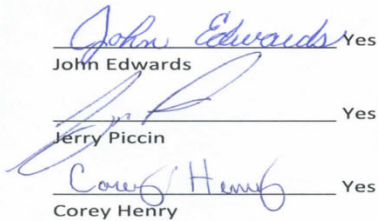 John Edwards Yes
John Edwards
Yes
Jerry Piccin
Corey Henry Yes
Corey Henry